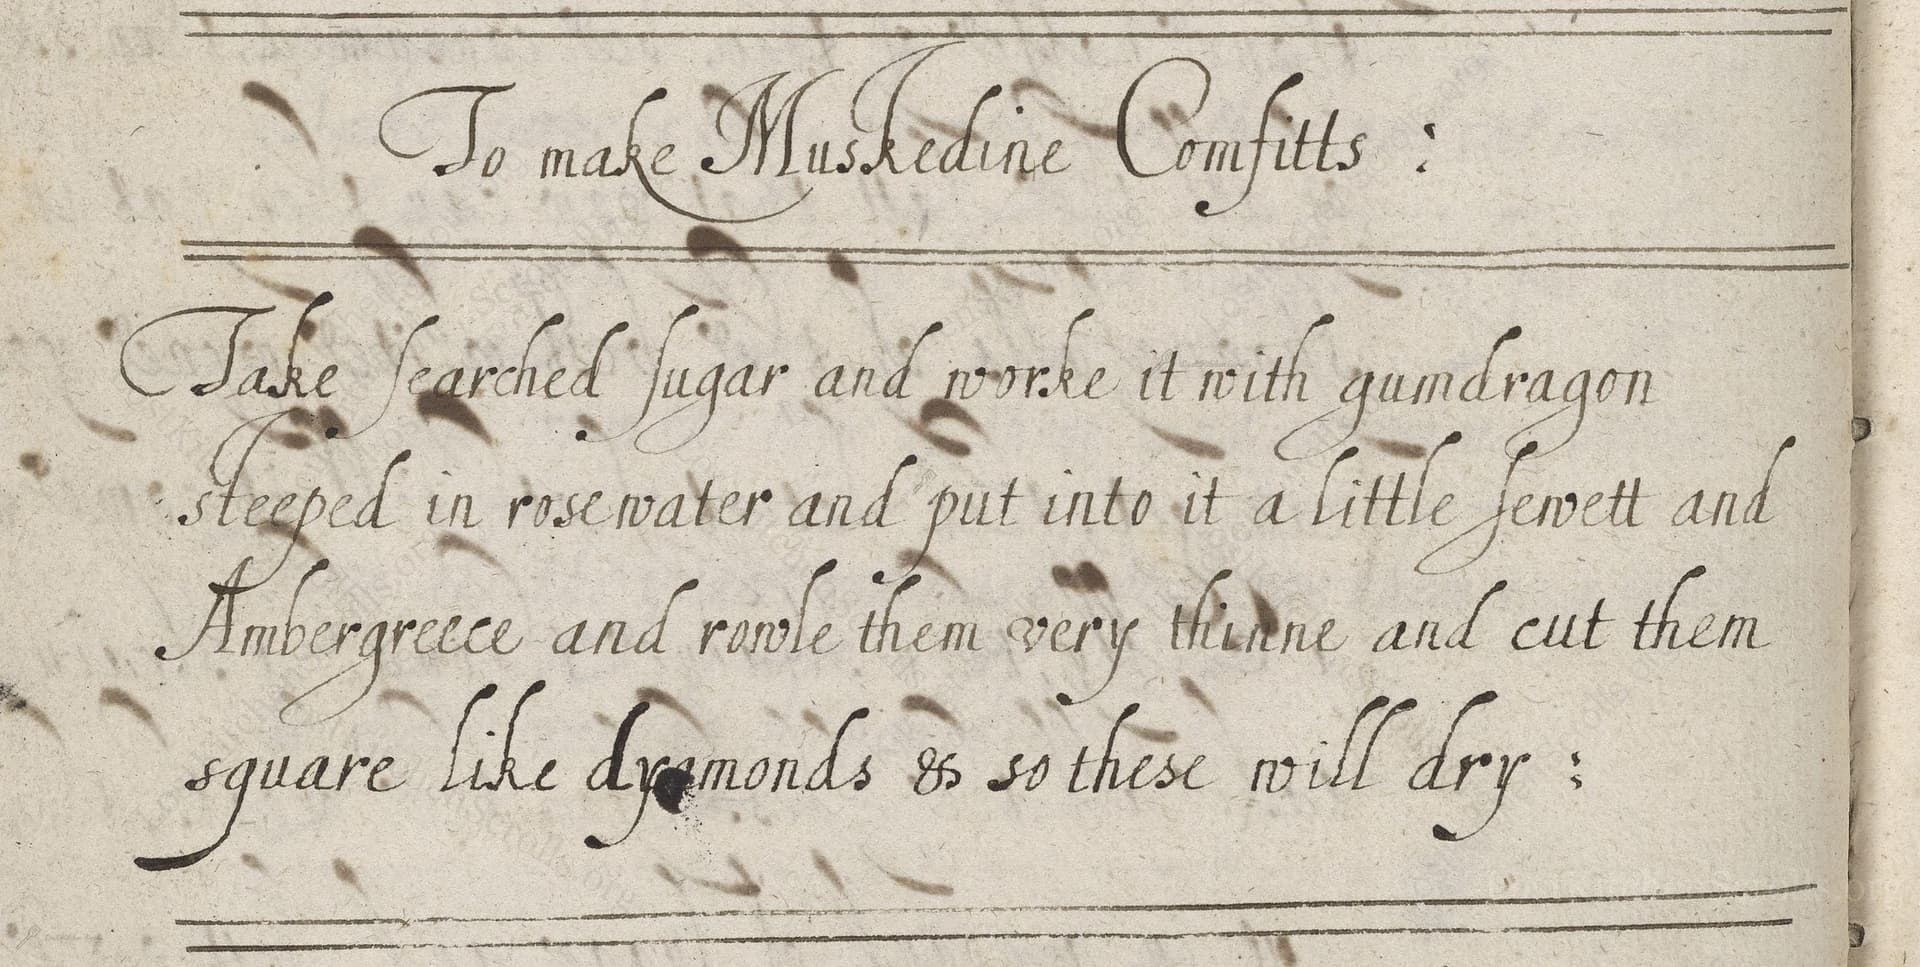 To make Muskedine Comfitts :
Take searched sugar and worke it with gumdragon
steeped in rosewater and put into it a little sewett and
Ambergreece and rowle them very thinne and cut them
square like dyamonds & so these will dry :